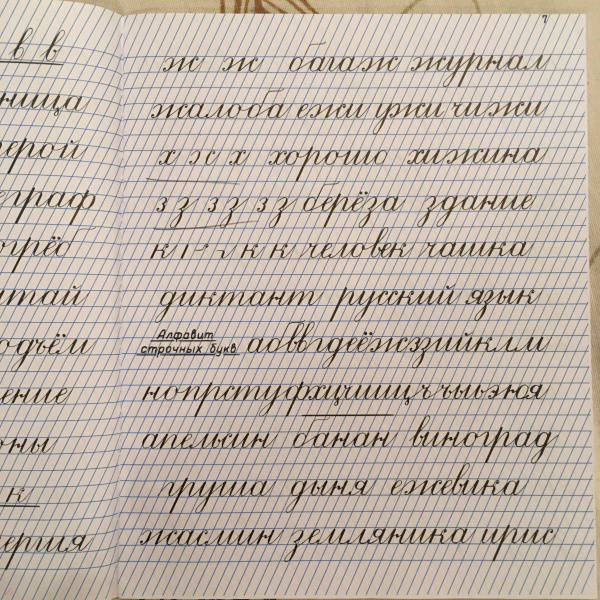 7
в в
ж ж багаж журнал
ница
жалоба ежи ужи чижи
ерой
х ж х хорошо хижина
еграф
з з з з з з берёза здание
огрёб
к к к человек чашка
итай
диктант русский язык
одъём
Алфавит
строчных букв
абвгдеёжзийклм
ение
нопрстуфхцчшщъыьэюя
оны
апельсин банан виноград
к
груша дыня ежевика
ергия
жасмин земляника ирис